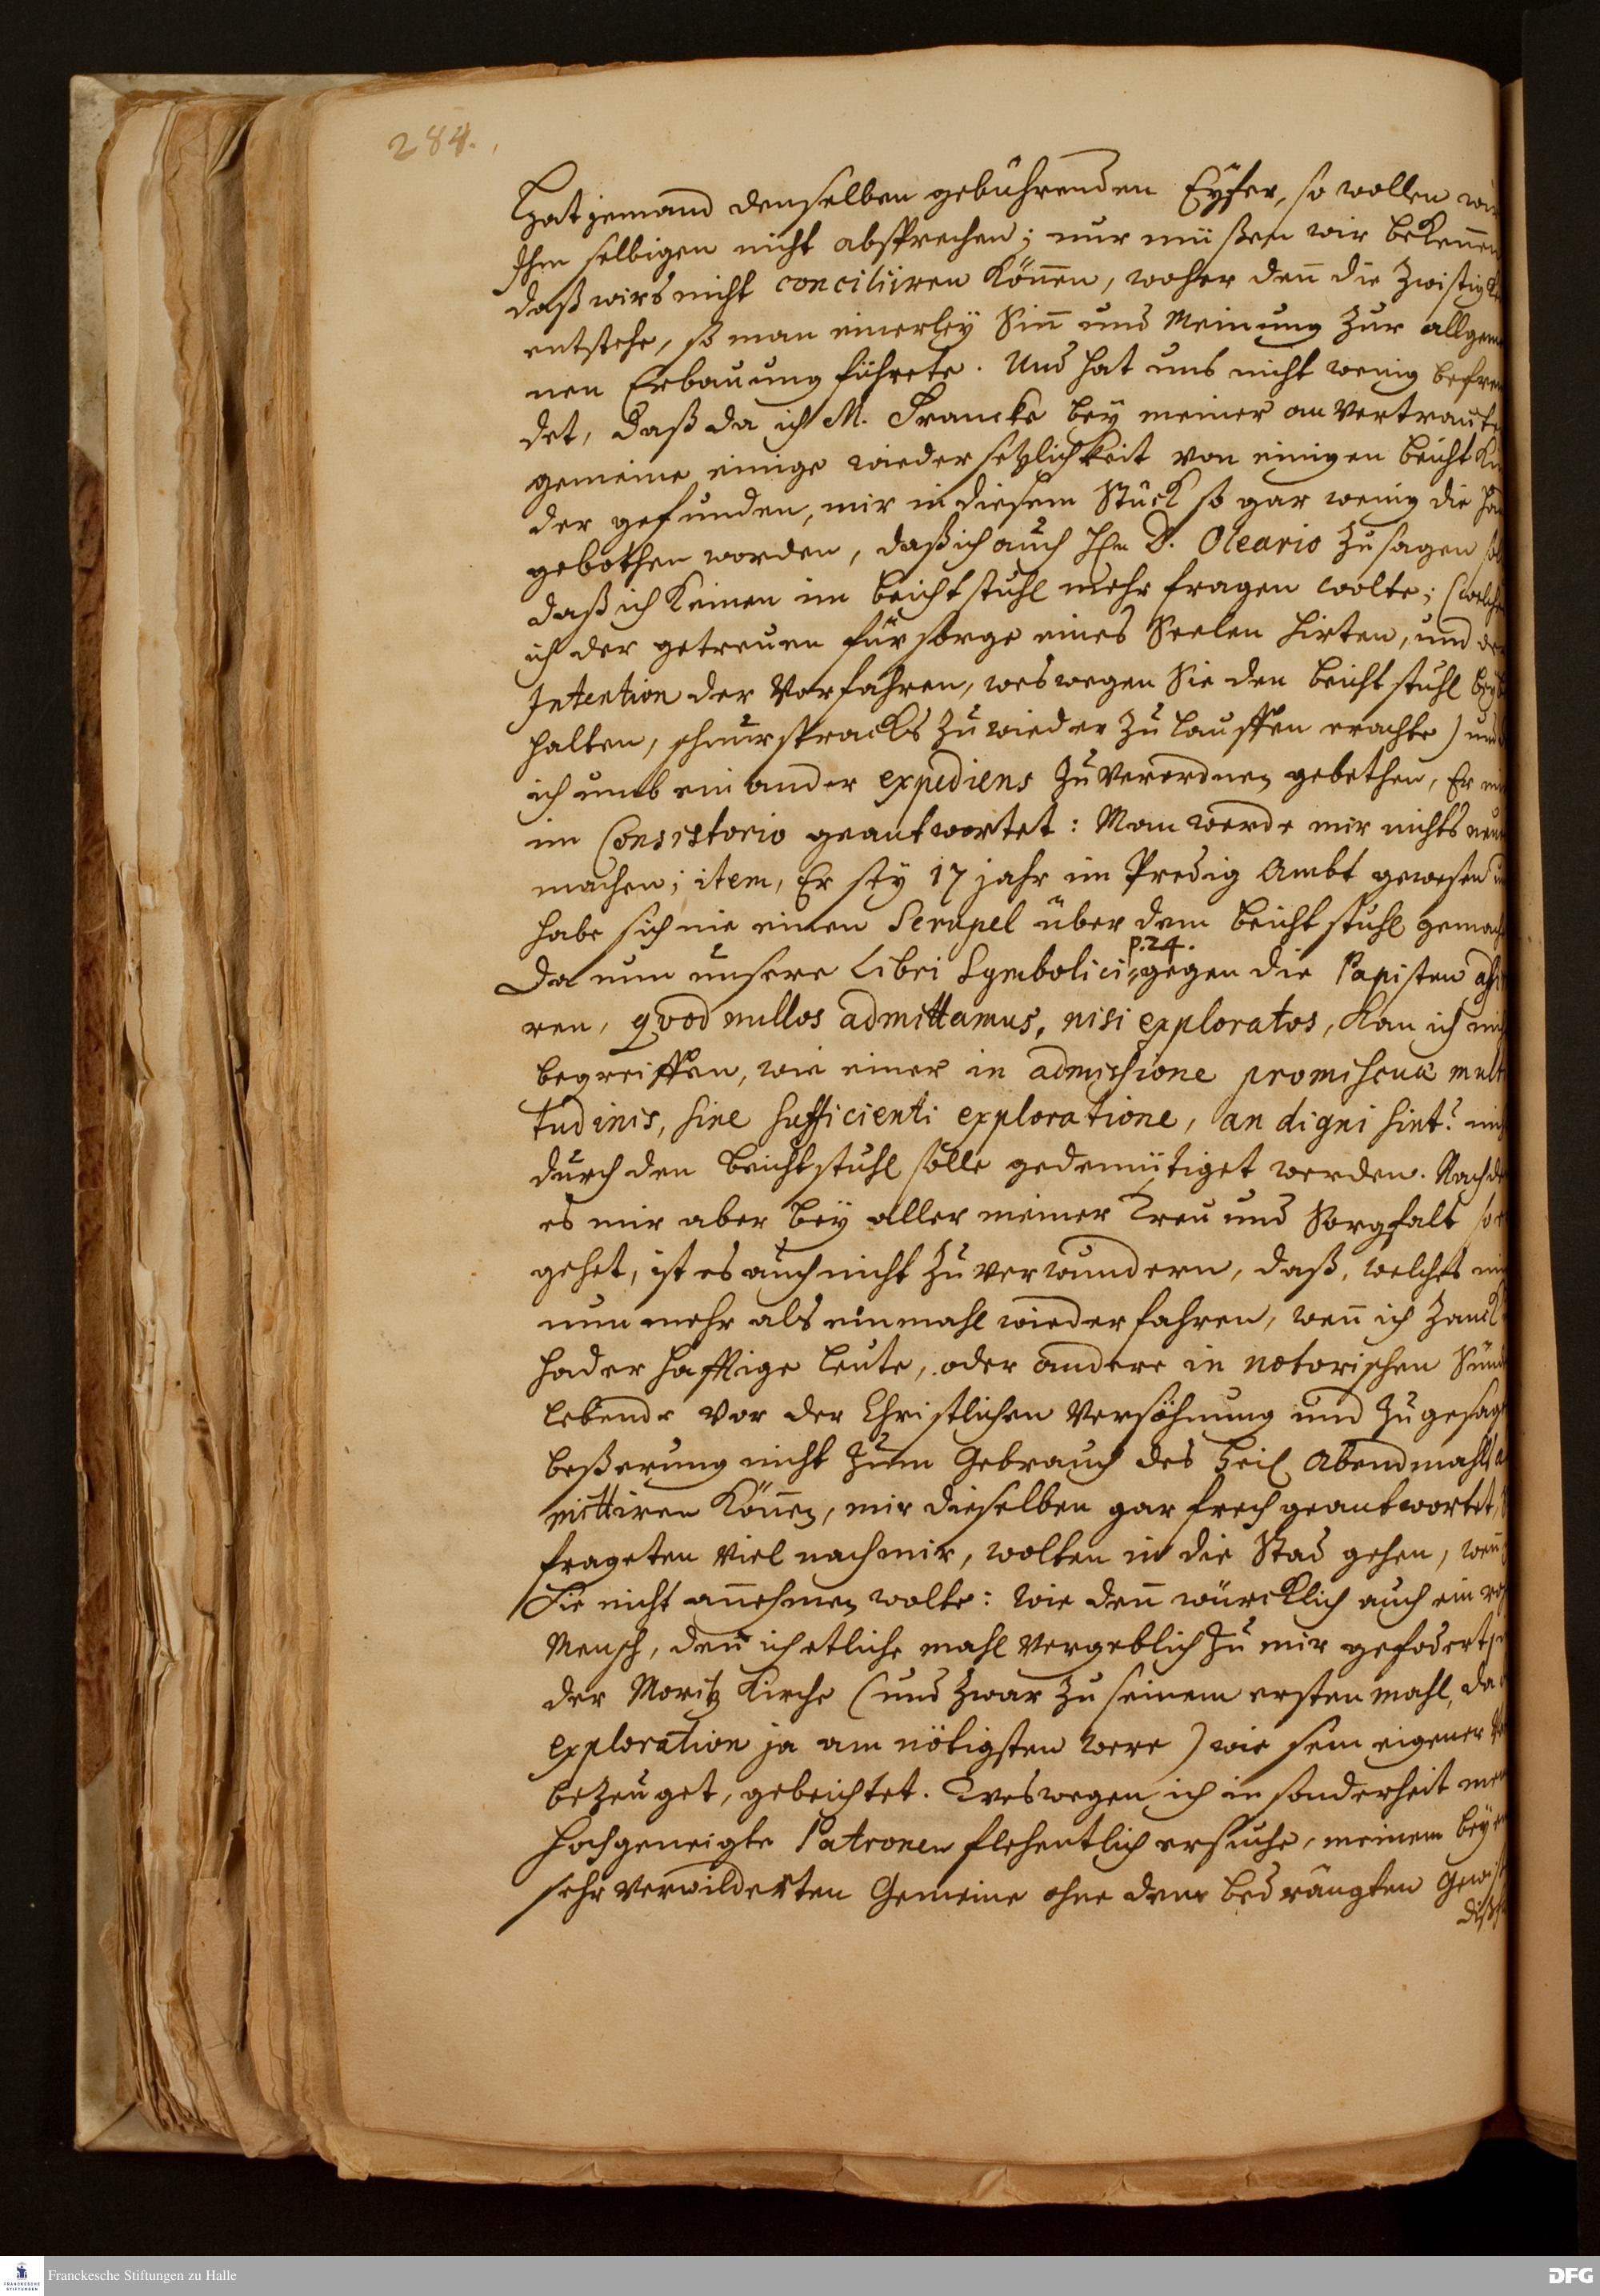 284.
Hat jemand denselben gebührenden Eyfer, so wollen wir
Ihm selbigen nicht absprechen; nur müßen wir bekeñen
daß wirs nicht conciliiren köñen, woher deñ die Zwistigk
entstehe, so man einerley Siñ und Meinung zur allgem
nen Erbauung führete. Und hat uns nicht wenig befrem
det, daß da ich M. Francke bey meiner anvertrauten
gemeine einige wiedersetzlichkeit von einigen beicht Kin
der gefunden, mir in diesem Stück so gar wenig die Hand
gebothen worden, daß ich auch Hn D. Oleario zu sagen
daß ich keinen im beichtstuhl mehr fragen wolte; (welches
ich der getreuen fürsorge eines Seelen Hirten, und der
Intention der Vorfahren, weswegen Sie den beichtstuhl beybe
halten, schnurstracks zu wieder zu lauffen erachte) und
ich umb ein ander expediens zu verordnen gebethen, Er mir
im Consistorio geantwortet: Man werde mir nichts neues
machen; item, Er sey 17 jahr im Predig Ambt gewesen und
habe sich nie einen Scrupel über dem beichtstuhl gemacht
p. 24.
Da nun unsere Libri Symbolici, gegen die Papisten
ren, qvod nullos admittamus, nisi exploratos, kan ich nicht
begreiffen, wie einer in admissione promiscuæ mult
tudinis, sine sufficienti exploratione, an digni sint? nicht
durch den beichtstuhl solle gedemütiget werden. Nachdem
es mir aber bey aller meiner Treu und Sorgfalt so er
gehet, ist es auch nicht zu verwundern, daß, welches mir
nun mehr als einmahl wiederfahren, weñ ich Zanck
haderhafftige leute, oder andere in notorischen Sünden
lebende vor der Christlichen Versöhnung und zugesagter
beßerung nicht zum Gebrauch des Heil Abendmahls ad
mittiren köñen, mir dieselben gar frech geantwortet,
frageten viel nach mir, wolten in die Stad gehen, weñ
Sie nicht añehmen wolte: Wie deñ würcklich auch ein
Mensch, den ich etliche mahl vergeblich zu mir gefodert, in
der Moritz Kirche (und zwar zu seinem ersten mahl, da
exploration ja am nötigsten were) wie sein eigener
bezeuget, gebeichtet. Weswegen ich in sonderheit meine
Hochgeneigte Patronen flehentlich ersuche, meinem bey
sehr verwilderten Gemeine ohne dem bedrängten Gewiß